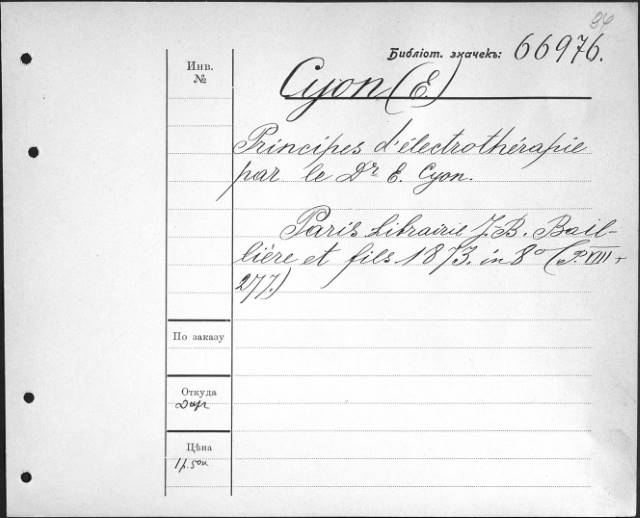 84
Библіот. значекъ: 66976.
Инв.
№
Cyon (E.)
Principes d'électrothérapie
par le Dr E. Cyon.
Paris Librairie J.-B. Bail-
lière et fils 1873. in 8o (P. VIII +
277.)
По заказу
Откуда
Дар
Цѣна
1 р. 50 к